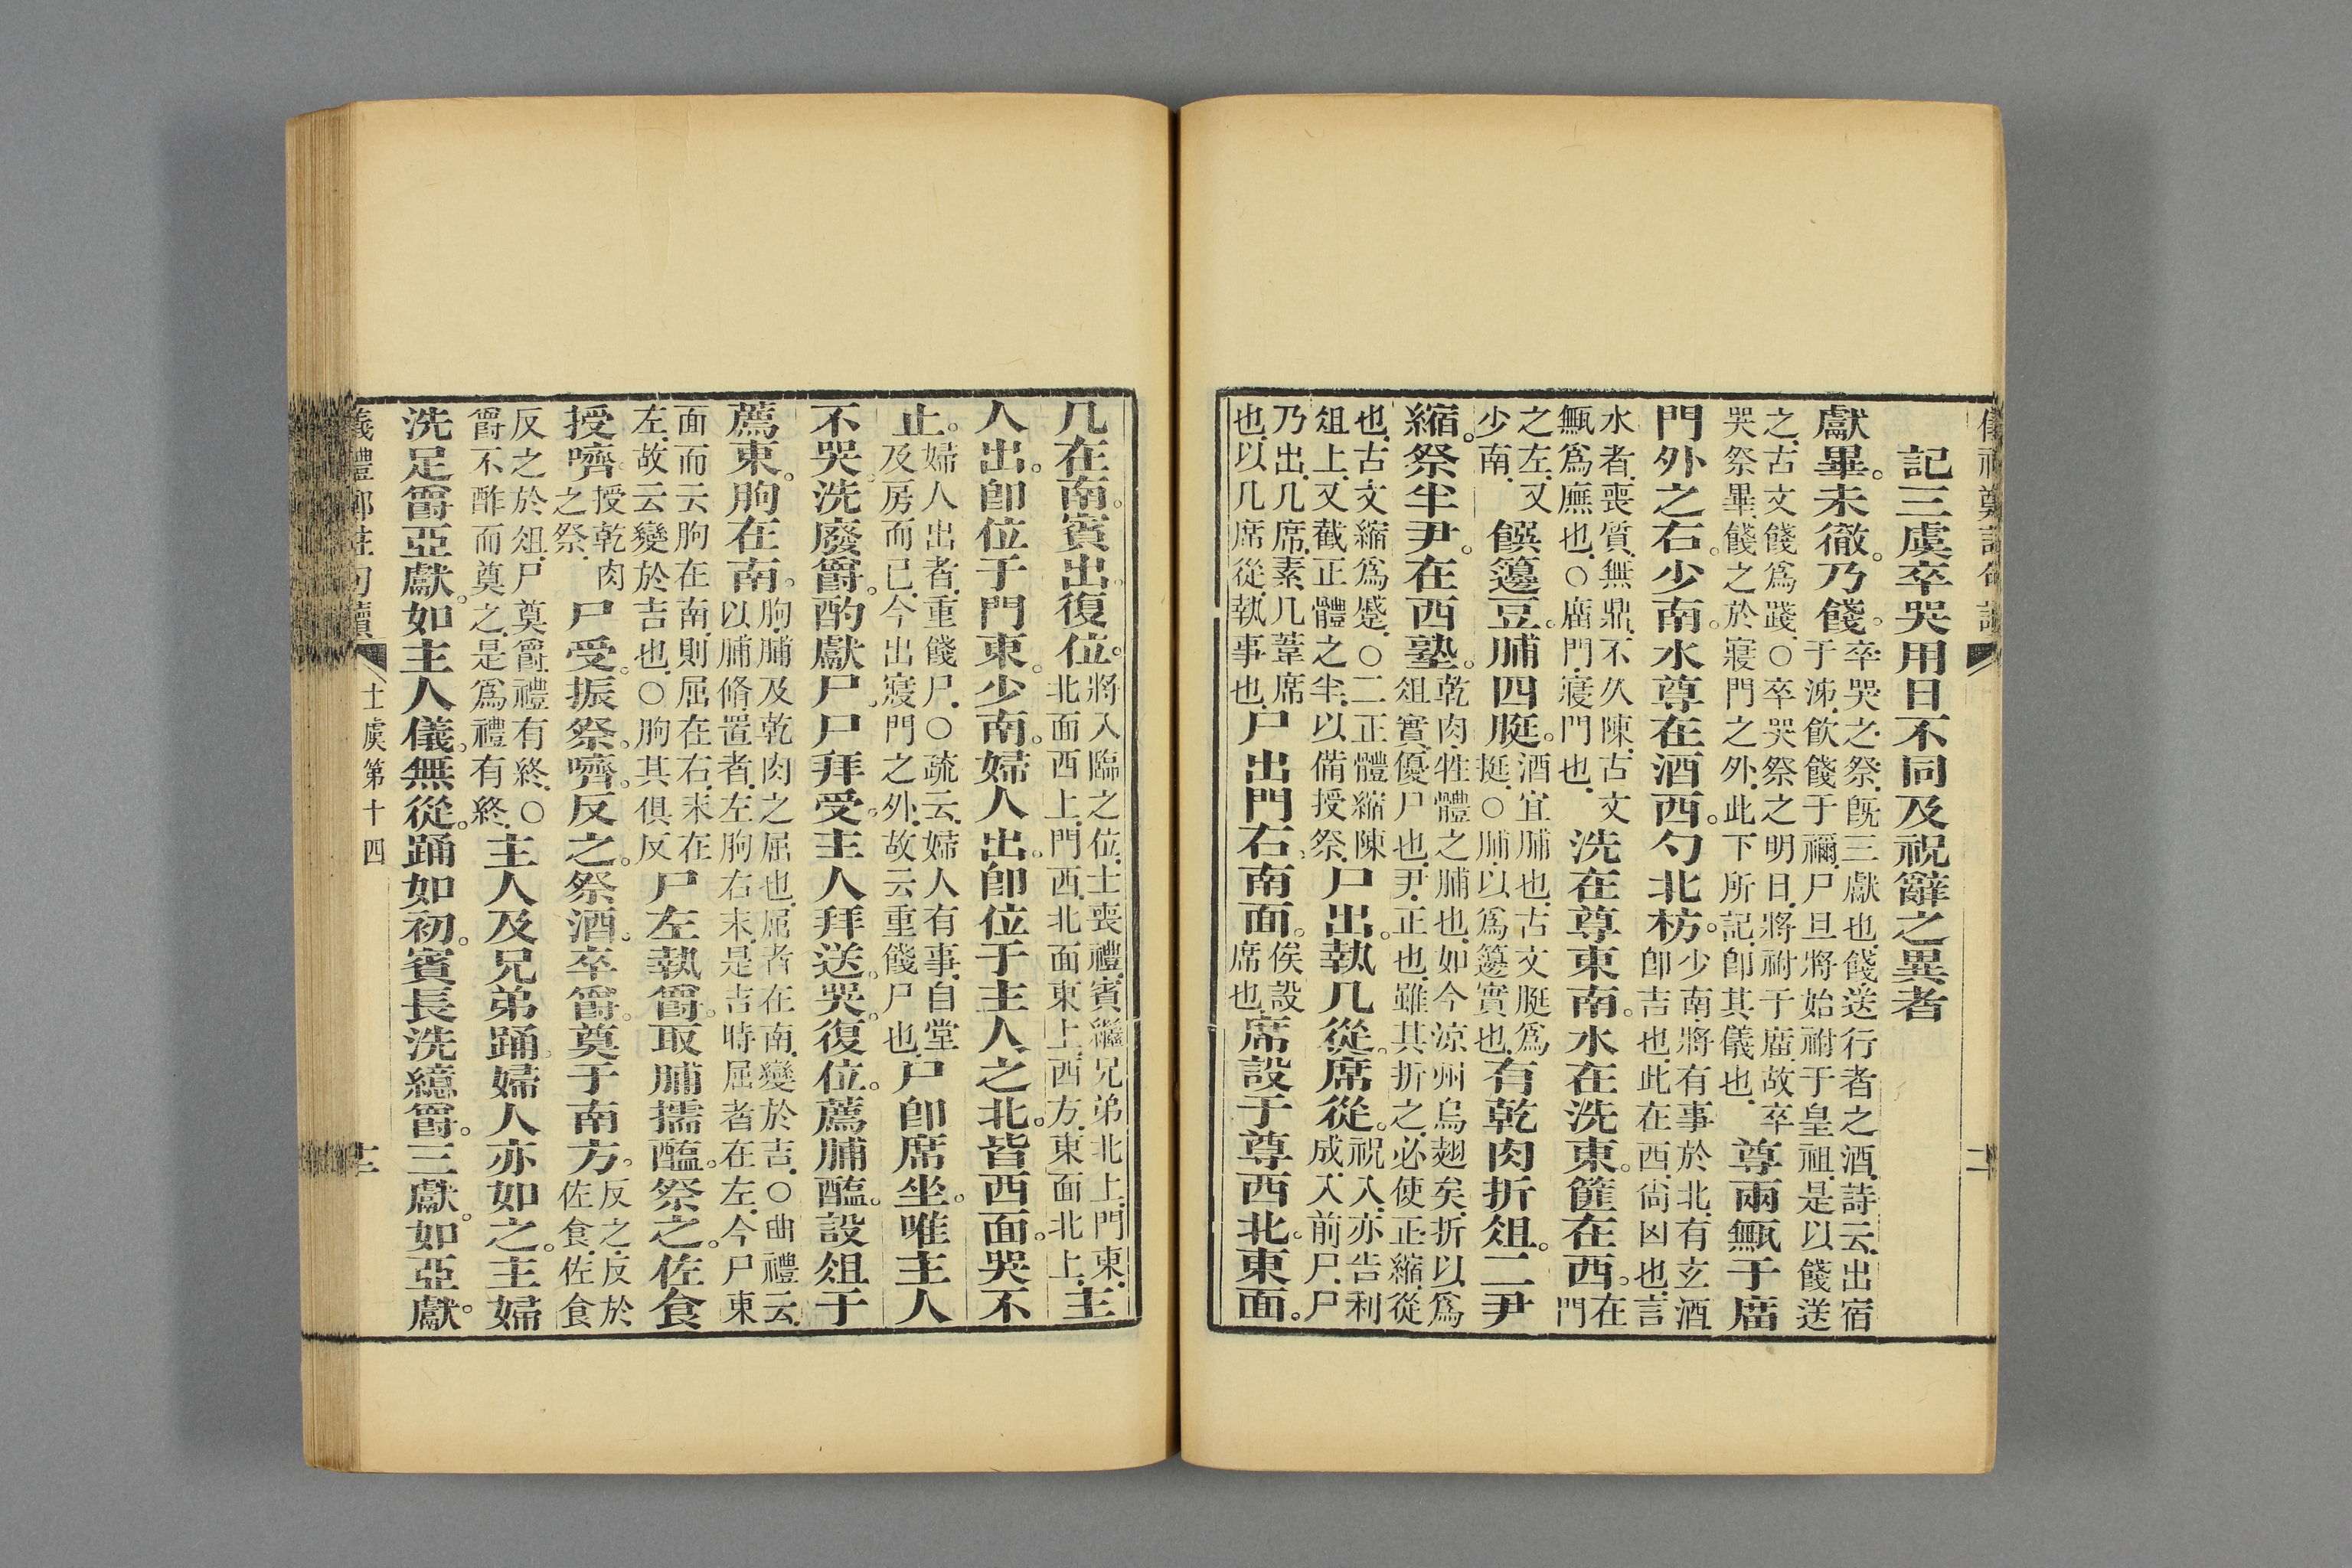 記三虞卒哭用日不同及祝辭之異者
獻畢。未徹。乃餞。卒哭之祭。旣三獻也。餞送行者之酒。詩云。出宿
于泲。飮餞于禰。尸旦將始祔于皇祖。是以餞送
之。古文餞爲踐。○卒哭祭之明日。將祔于廟。故卒
哭祭畢。餞之於寢門之外。此下所記。卽其儀也。尊兩甒于廟
門外之右。少南。水尊在酒西。勺北枋。少南。將有事於北。有玄酒
卽吉也。此在西。尙凶也。言
水者。喪質。無鼎。不久陳。古文
甒爲廡也。○廟門。寢門也。洗在尊東南。水在洗東。篚在西。在門
之左。又
少南。饌籩豆。脯四脡。酒宜脯也。古文脡爲
挺。○脯。以爲籩實也。有乾肉折俎。二尹
縮。祭半尹。在西塾。乾肉。牲體之脯也。如今涼州烏翅矣。折以爲
俎實。優尸也。尹。正也。雖其折之。必使正縮。從
也。古文縮爲蹙。○二正體縮陳
俎上。又截正體之半。以備授祭。尸出。執几從。席從。祝入。亦告利
成。入前尸。尸
乃出。几席。素几葦席
也。以几席從。執事也。尸出門右。南面。俟設
席也。席設于尊西北。東面。
几在南。賓出。復位。將入臨之位。士喪禮。賓繼兄弟北上。門東。
北面西上。門西。北面東上。西方。東面北上。主
人出。卽位于門東。少南。婦人出。卽位于主人之北。皆西面。哭不
止。婦人出者。重餞尸。○疏云。婦人有事。自堂
及房而已。今出寢門之外。故云重餞尸也。尸卽席坐。唯主人
不哭。洗廢爵。酌獻尸。尸拜受。主人拜送。哭。復位。薦脯醢。設俎于
薦東。朐在南。朐。脯及乾肉之屈也。屈者在南。變於吉。○曲禮云。
以脯脩置者。左朐右末。是吉時屈者在左。今尸東
面而云朐在南。則屈在右。末在
左。故云變於吉也。○朐其俱反尸左執爵。取脯擩醢。祭之。佐食
授嚌。授乾肉
之祭。尸受。振祭。嚌。反之。祭酒。卒爵。奠于南方。反之。反於
佐食。佐食
反之於俎。尸奠爵。禮有終。○
爵不酢而奠之。是爲禮有終。主人及兄弟踊。婦人亦如之。主婦
洗足爵亞獻。如主人儀。無從。踊如初。賓長洗繶爵。三獻。如亞獻。
士虞第十四